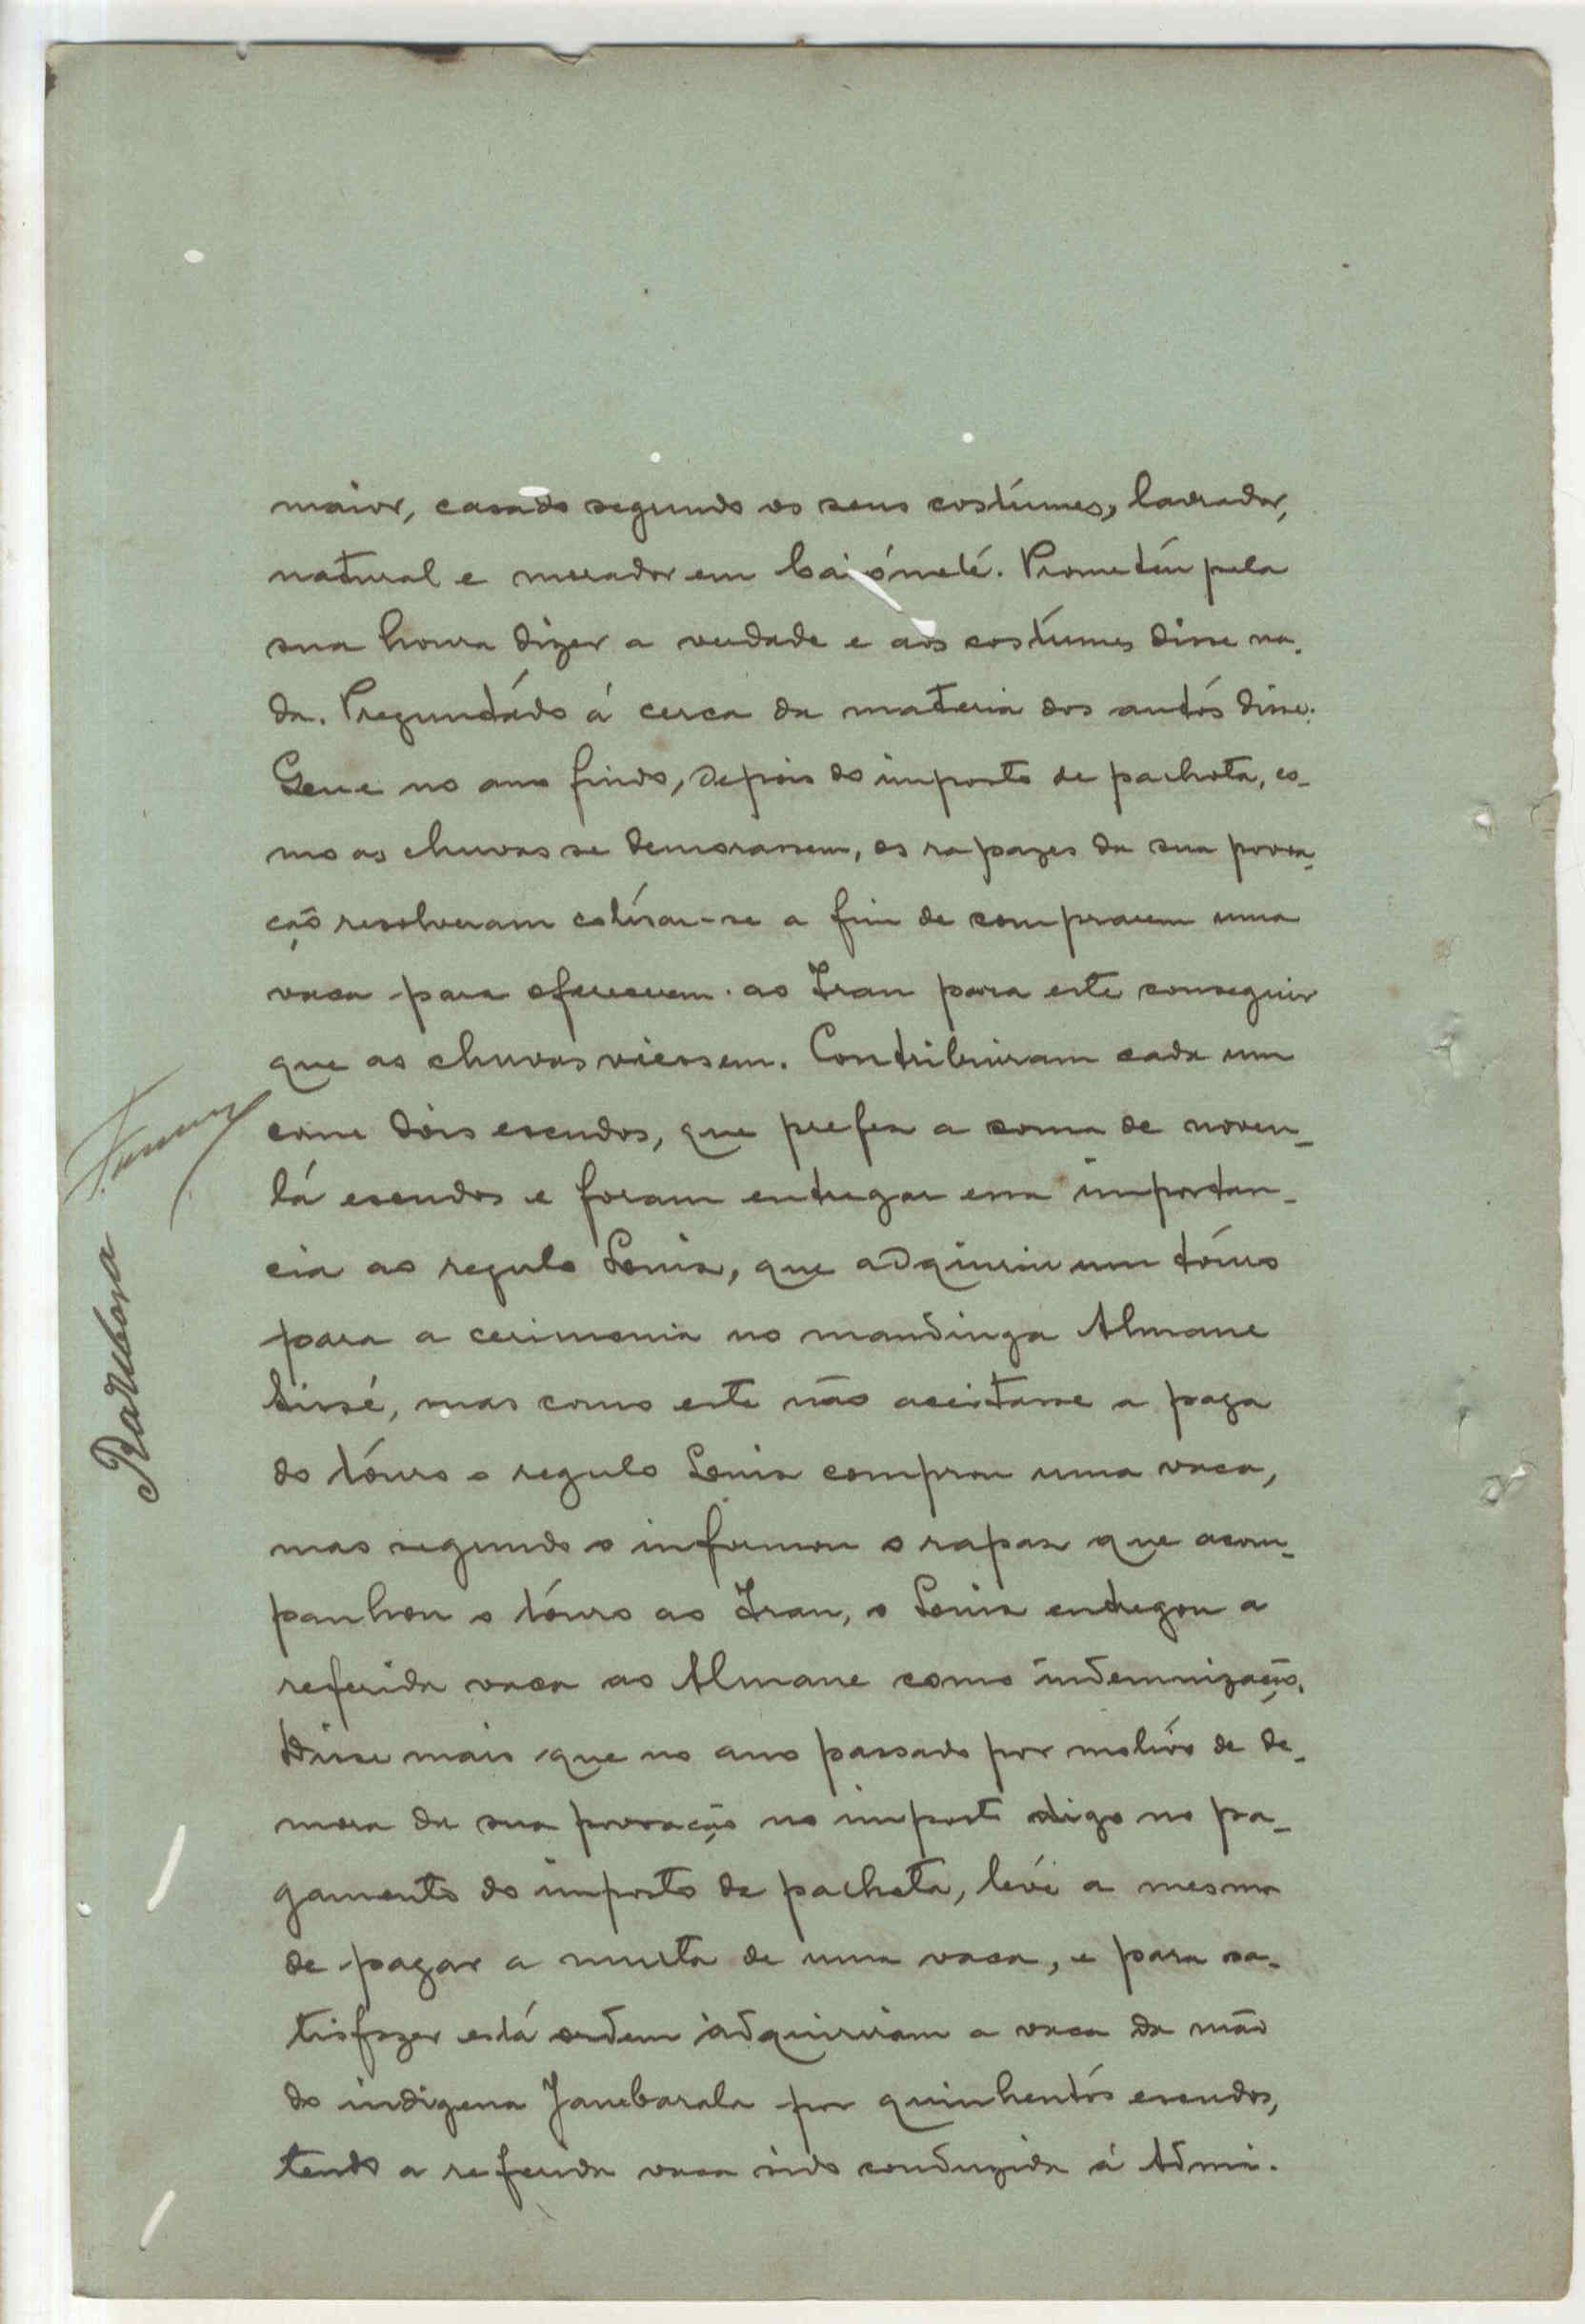 maior, casado segundo os seus costúmes, lavrador,
natural e morador em Caiómeté. Prometeu pela
sua honra dizer a verdade e aos costúmes disse na-
da. Preguntádo á cerca da materia dos autós disse:
Que no ano findo, depois do imposto de palhota, co-
mo as chuvas se demorassem, os rapazes da sua povoa-
ção resolveram cotisar-se a fim de comprarem uma
vaca para oferecerem ao Iran para este conseguir
que as chuvas viessem. Contribuiram cada um
com dois escudos, que prefez a soma de noven-
tá escudos e foram entregar essa importan-
cia ao regulo Louis, que adquiriu um touro
para a cerimonia no mandinga Almame
Sissé, mas como este não aceitasse a paga
do touro o regulo Louis comprou uma vaca,
mas segundo o informou o rapaz que acom-
panhou o touro ao Iran, o Louis entregou a
referida vaca ao Almame como indemnização.
Disse mais que no ano passado por motivo de de-
mora da sua povoação no imposto digo no pa-
gamento do imposto de palhota, teve a mesma
de pagar a multa de uma vaca, e para sa-
tisfazer está ordem adquiriram a vaca da mão
do indigena Janebarala por quinhentós escudos,
tendo a referida vaca sido conduzida á Admi-
Barbosa